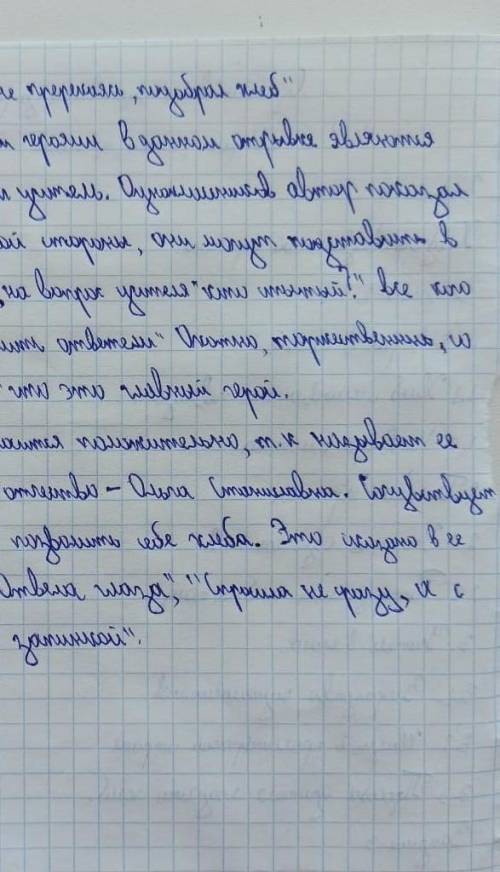 не перепички, подобрал хлеб"
героями в данном отрывке являются
учитель. Одноклассников автор показал
ой стороны, они могут подставить в
на вопрос учителя "кто пытый?" все кто
ответили" Охотно, торжественно, и
что это главный герой.
положительно, т.к называет ее
отчество – Ольга Станиславовна. Сочувствует
позволить себе хлеба. Это видно в ее
Отвела глаза", "Спросила не сразу, и с
запинкой".